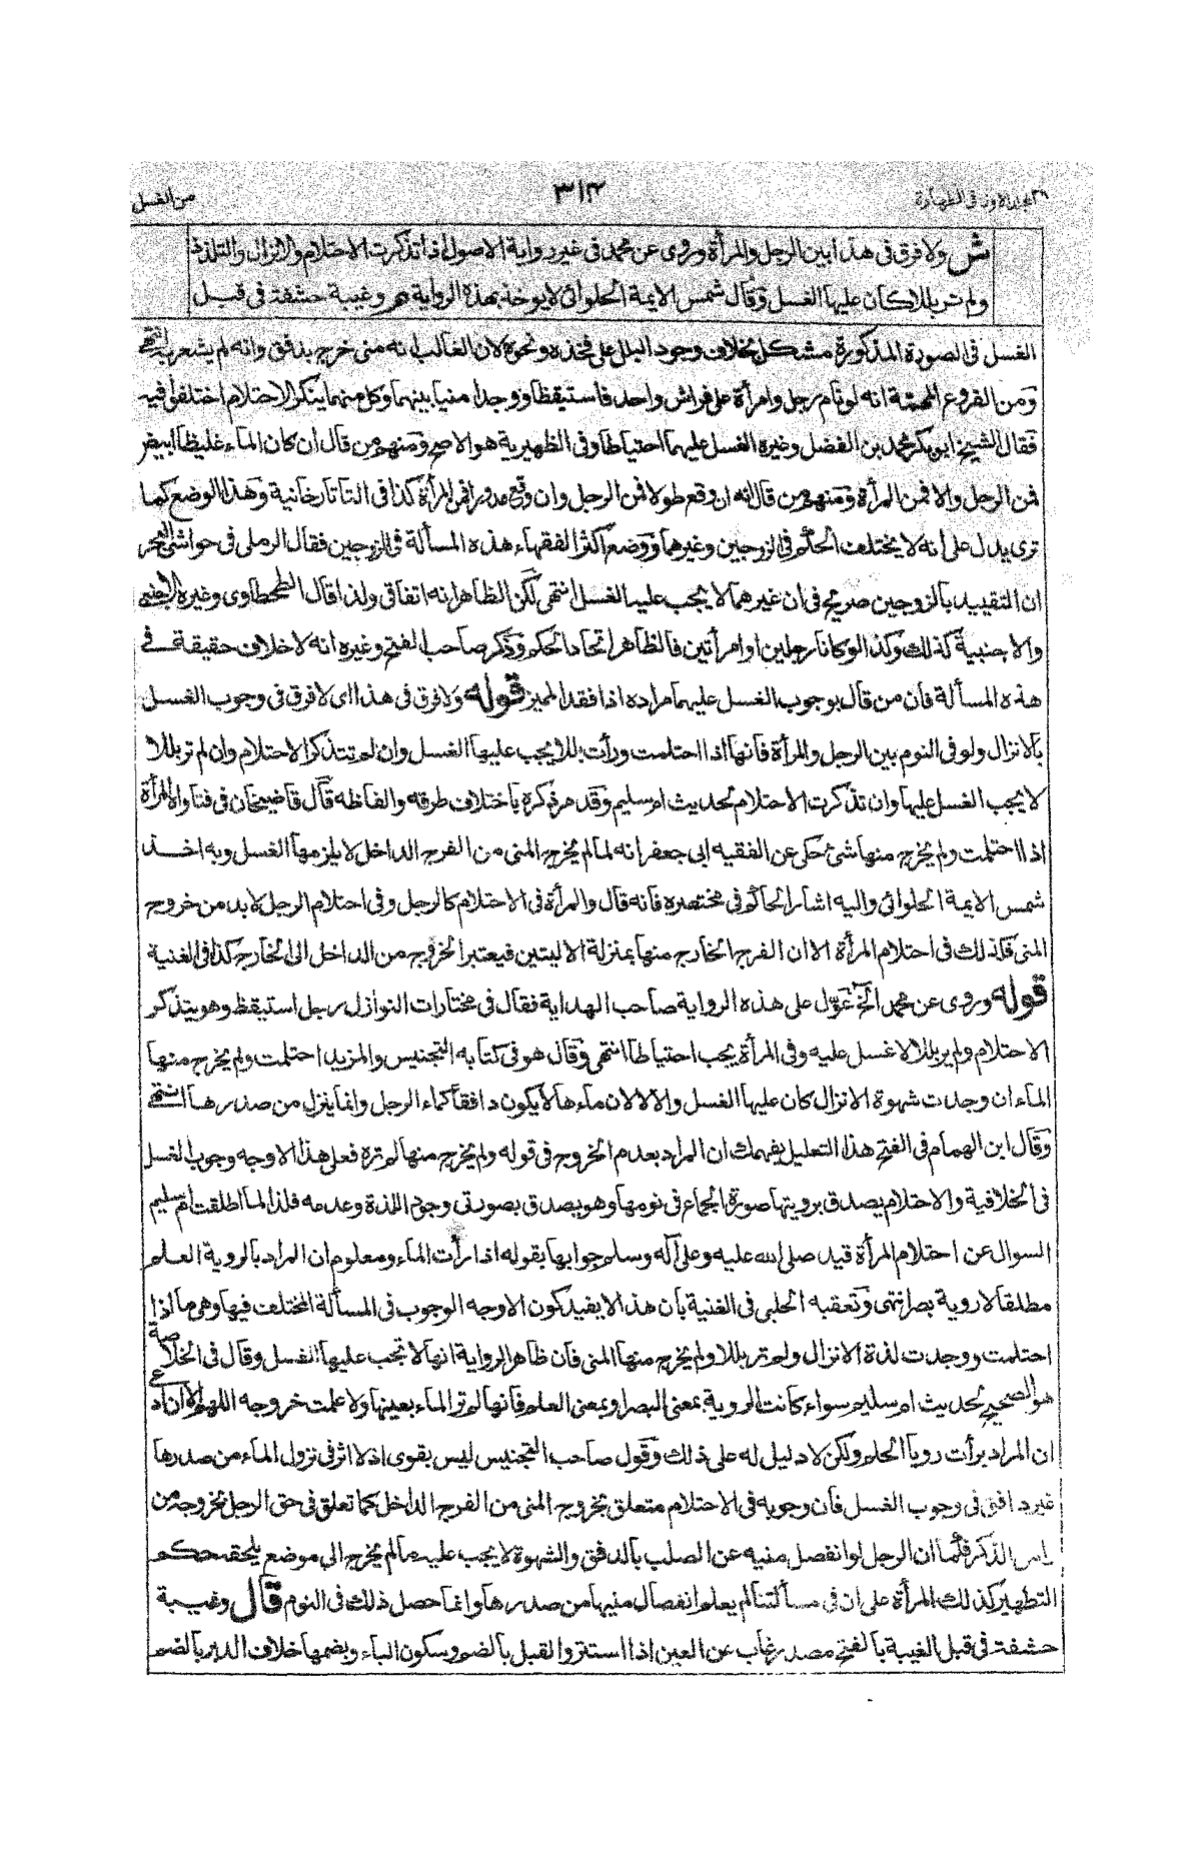 المجلد الاول في الطهارة ٣١٤ من الغسل
ش ولا فرق في هذا بين الرجل والمرأة وروى عن محمد في غير رواية الاصول اذا تذكرت الاحتلام والانزال والتلذذ
ولم تر بللا كان عليها الغسل وقال شمس الايمة الحلوائي لا يوخذ بهذه الرواية هر وغيبة حشفة في قبل
الغسل في الصورة المذكورة مشكل بخلاف وجود البلل على فخذه ونحوه لان الغالب انه مني خرج بدفق وانه لم يشعر به انتهى
ومن الفروع المهمة انه لو نام رجل وامرأة على فراش واحد فاستيقظا ووجدا منيا بينهما وكل منهما ينكر الاحتلام اختلفوا فيه
فقال الشيخ ابو بكر محمد بن الفضل وغيره الغسل عليهما احتياطا وفي الظهيرية هو الاصح ومنهم من قال ان كان الماء غليظا ابيض
فمن الرجل والا فمن المرأة ومنهم من قال انه ان وقع طولا فمن الرجل وان وقع مدورا فمن المرأة كذا في التاتارخانية وهذا الوضع كما
ترى يدل على انه لا يختلف الحكم في الزوجين وغيرهما ووضع اكثر الفقهاء هذه المسألة في الزوجين فقال الرملي في حواشي البحر
ان التقييد بالزوجين صريح في ان غيرهما لا يجب عليه الغسل انتهى لكن الظاهر انه اتفاقي ولذا قال الطحطاوي وغيره الاجنبي
والاجنبية كذلك وكذا لو كانا رجلين او امرأتين فالظاهر اتحاد الحكم وذكر صاحب الفتح وغيره انه لا خلاف حقيقة في
هذه المسألة فان من قال بوجوب الغسل عليهما مراده اذا فقد المميز قوله ولا فرق في هذا اى لا فرق في وجوب الغسل
بالانزال ولو في النوم بين الرجل والمرأة فانها اذا احتلمت ورأت بللا يجب عليها الغسل وان لم تتذكر الاحتلام وان لم تر بللا
لا يجب الغسل عليها وان تذكرت الاحتلام لحديث ام سليم وقد مر ذكره باختلاف طرقه والفاظه قال قاضيخان في فتاواه المرأة
اذا احتلمت ولم يخرج منها شئ حكى عن الفقيه ابى جعفر انه لما لم يخرج المني من الفرج الداخل لا يلزمها الغسل وبه اخذ
شمس الايمة الحلوائي واليه اشار الحاكم في مختصره فانه قال والمرأة في الاحتلام كالرجل وفي احتلام الرجل لابد من خروج
المني فكذلك في احتلام المرأة الا ان الفرج الخارج منها بمنزلة الاليتين فيعتبر الخروج من الداخل الى الخارج كذا في الغنية
قوله وروى عن محمد الخ عوّل على هذه الرواية صاحب الهداية فقال في مختارات النوازل رجل استيقظ وهو يتذكر
الاحتلام ولم ير بللا لا غسل عليه وفي المرأة يجب احتياطا انتهى وقال هو في كتابه التجنيس والمزيد احتلمت ولم يخرج منها
الماء ان وجدت شهوة الانزال كان عليها الغسل والا لا لان ماءها لا يكون دافقا كماء الرجل وانما ينزل من صدرها انتهى
وقال ابن الهمام في الفتح هذا التعليل يفهمك ان المراد بعدم الخروج في قوله ولم يخرج منها لم تره فعلى هذا الاوجه وجوب الغسل
في الخلافية والاحتلام يصدق برويتها صورة الجماع في نومها وهو يصدق بصورتي وجود اللذة وعدمه فلذا لما اطلقت ام سليم
السوال عن احتلام المرأة قيد صلى الله عليه وعلى آله وسلم جوابها بقوله اذا رأت الماء ومعلوم ان المراد بالروية العلم
مطلقا لا روية بصر انتهى وتعقبه الحلبي في الغنية بان هذا لا يفيد كون الاوجه الوجوب في المسألة المختلف فيها وهي ما اذا
احتلمت ووجدت لذة الانزال ولم تر بللا ولم يخرج منها المني فان ظاهر الرواية انها لا تجب عليها الغسل وقال في الخلاصة
هو الصحيح لحديث ام سليم سواء كانت الروية بمعنى البصر او بمعنى العلم فانها لم تر الماء بعينها ولا علمت خروجه اللهم الا ان ادعى
ان المراد برأت رويا الحلم ولكن لا دليل له على ذلك وقول صاحب التجنيس ليس بقوى اذ لا اثر في نزول الماء من صدرها
غير دافق في وجوب الغسل فان وجوبه في الاحتلام متعلق بخروج المني من الفرج الداخل كما تعلق في حق الرجل بخروجه من
راس الذكر فكما ان الرجل لو انفصل منيه عن الصلب بالدفق والشهوة لا يجب عليه مالم يخرج الى موضع يلحقه حكم
التطهير كذلك المرأة على ان في مسألتنا لم يعلم انفصال منيها من صدرها وانما حصل ذلك في النوم قال وغيبة
حشفة في قبل الغيبة بالفتح مصدر غاب عن العين اذا استتر والقبل بالضم وسكون الباء وبضمها خلاف الدبر بالضم